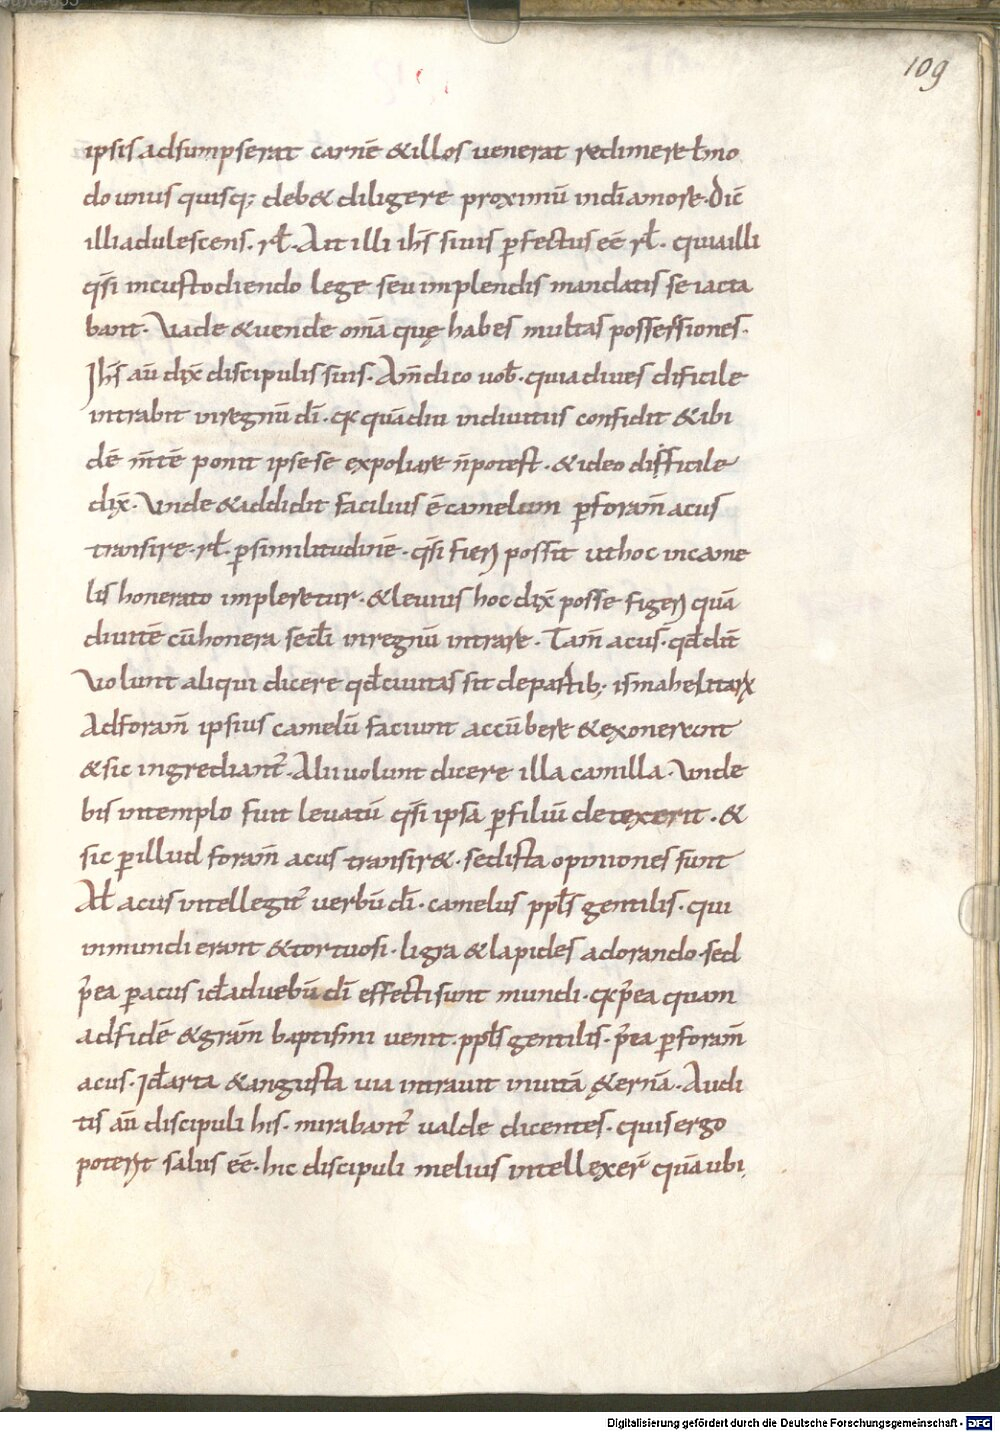 109
ipsis adsumpserat carnē &illos uenerat redimere ł mo
do unus quisq; deb& diligere proximū indīamore. Dic̄
illi adulescens. rł. Ait illi ih̄s siuis ꝑfectus ēē rł. quia illi
qs̄i incustodiendo lege seu implendis mandatis se iacta
bant. Uade &uende om̄a quę habes multas possessiones.
Ih̄s aū dix̄ discipulis suis. Am̄ dico uob̄. quia diues dificile
intrabit inregnū dī. qꝛ quādiu indiuitiis confidit &ibi
dē m̄tē ponit ipse se expoliare n̄potest. &ideo difficile
dix̄. Unde &addidit facilius ē camelum ꝑforam̄ acus
transire. rł. ꝑsimilitudinē. qs̄i fieri possit ut hoc incame
lis honerato impleretur. &leuius hoc dix̄ posse figeri quā
diuitē cū honera sedī inregnū intrare. Tam̄ acus. qd̄ dūt
Uolunt aliqui dicere qd̄ ciuitas sit departib; ismahelitarꝝ
Ad foram̄ ipsius camelū faciunt accūbere &exonerant
&sic ingrediant᷑. Alii uolunt dicere illa camilla. Unde
bis intemplo fuit leuatū qs̄i ipsa ꝑfiliū detexerit. &
sic ꝑillud foram̄ acus transir&. sed ista opiniones sunt
At̄ acus intellegit᷑ uerbū dī. camelus ppłs gentilis. qui
inmundi erant &tortuosi. ligra &lapides adorando. sed
p̄ea ꝑacus id̄ aduebū dī effecti sunt mundi. qꝛ p̄ea quam
adfidē &grām baptismi uenit. ppłs gentilis. p̄ea ꝑforam̄
acus. Id̄ arta &angusta uia intrauit inuitā &ernā. Audi
tis aū discipuli his. mirabant᷑ ualde dicentes. quis ergo
poterit saluus ēē. hic discipuli melius intellexer̄ quā ubi
Digitalisierung gefördert durch die Deutsche Forschungsgemeinschaft - DFG